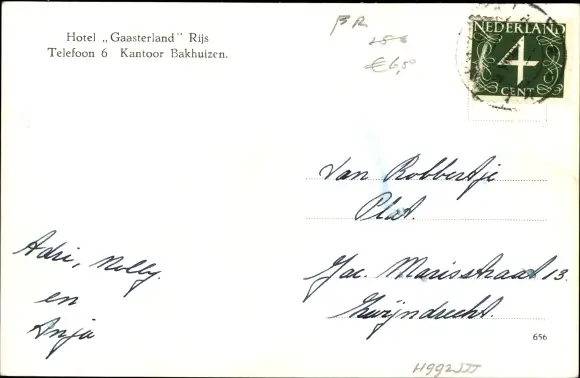 Hotel „Gaasterland" Rijs
Telefoon 6 Kantoor Bakhuizen.
€6,50
NEDERLAND
4
CENT
Van Robbertje
Plat.
Jac. Marisstraat 13.
Zwijndrecht.
Adri, Nolly.
en
Anja
656